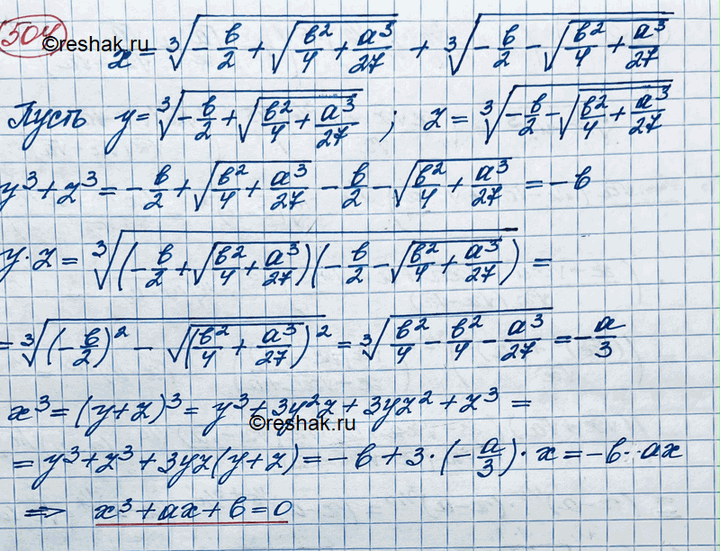 504
©reshak.ru
x = ∛(-в/2 + √(в²/4 + a³/27)) + ∛(-в/2 - √(в²/4 + a³/27))
Пусть y = ∛(-в/2 + √(в²/4 + a³/27)) ; z = ∛(-в/2 - √(в²/4 + a³/27))
y³ + z³ = -в/2 + √(в²/4 + a³/27) - в/2 - √(в²/4 + a³/27) = -в
y · z = ∛((-в/2 + √(в²/4 + a³/27))(-в/2 - √(в²/4 + a³/27))) =
= ∛((-в/2)² - √(в²/4 + a³/27)²) = ∛(в²/4 - в²/4 - a³/27) = -a/3
x³ = (y+z)³ = y³ + 3y²z + 3yz² + z³ =
©reshak.ru
= y³ + z³ + 3yz(y+z) = -в + 3 · (-a/3) · x = -в - ax
⇒ x³ + ax + в = 0